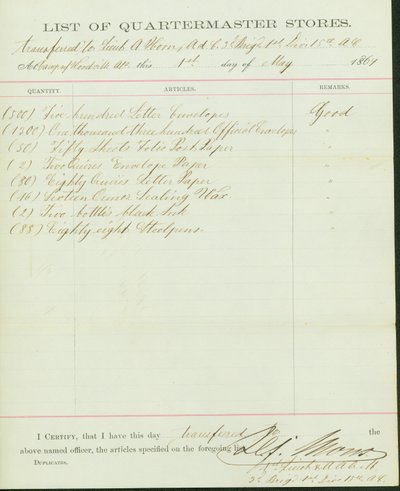 LIST OF QUARTERMASTER STORES.
transferred to Lieut A Horn, A.d.C. 3d Brig 1st Div 15th A.C.
At Camp of Woodville Ala. this 1st day of May 1864
QUANTITY. ARTICLES. REMARKS.
(500) Five hundred Letter Envelopes Good
(1300) One thousand three hundred Official Envelops "
(50) Fifty Sheets Folio Post Paper "
(2) Two Quires Envelope Paper "
(80) Eighty Quires Letter Paper "
(16) Sixteen Ounces Sealing Wax "
(2) Two bottles black Ink "
(88) Eighty eight Steelpens "
I CERTIFY, that I have this day transferred to the
above named officer, the articles specified on the foregoing list.
DUPLICATES.
1st Lieut & A.A.Q.M.
3d Brig 1st Div 15th A.C.